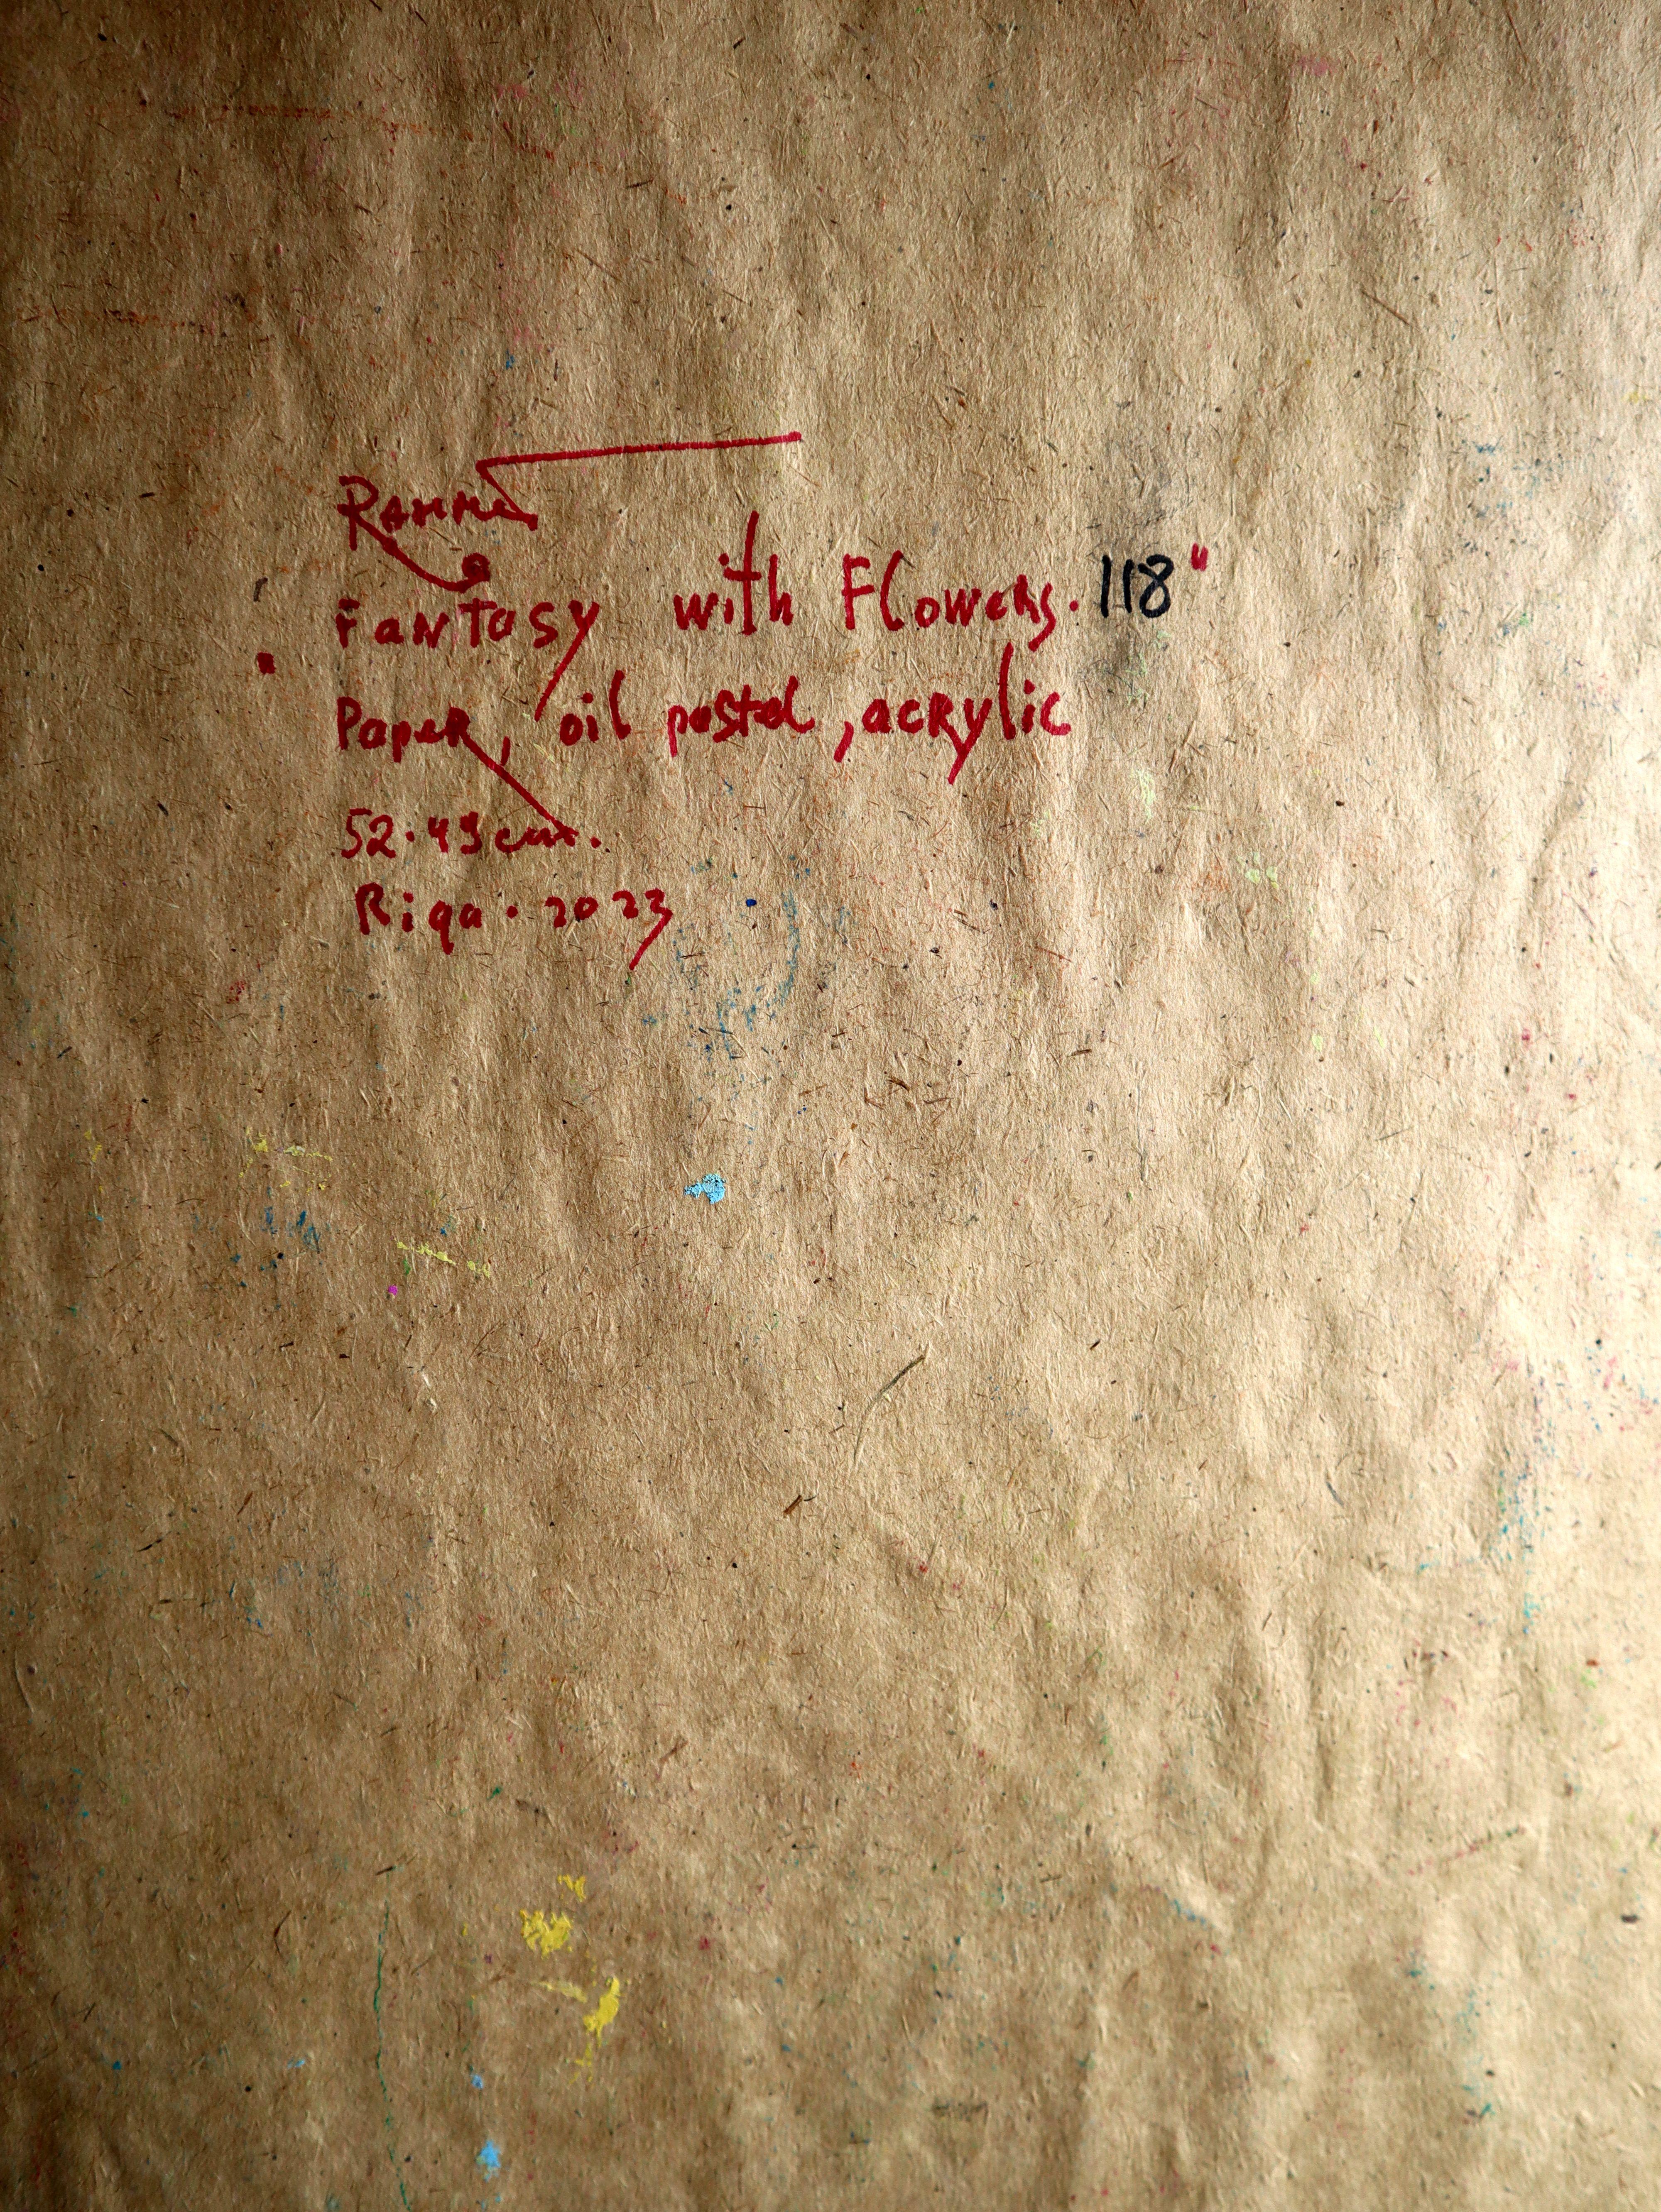 Fantasy with Flowers. 118"
Paper, oil pastel, acrylic
52.49cm.
Riga. 2023